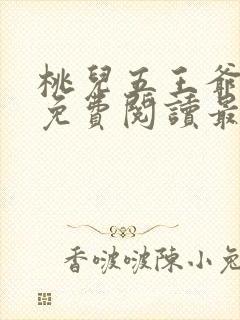 桃兒五王爺
免費閱讀最
香啵啵陳小兔